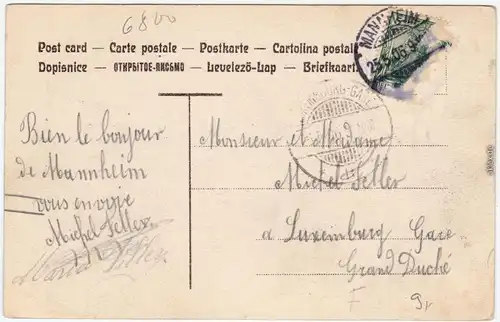 6800
Post card — Carte postale — Postkarte — Cartolina postale
Dopisnice — ОТКРЫТОЕ-ПИСЬМО — Levelező-Lap — Briefkaart
MANNHEIM 1
25.5.06
LUXEMBOURG-GARE
Bien le bonjour
de Mannheim
vous envoie
Michel Seller
Maria Seller
Monsieur et Madame
Michel Seller
a Luxemburg Gare
Grand Duché
F 9r